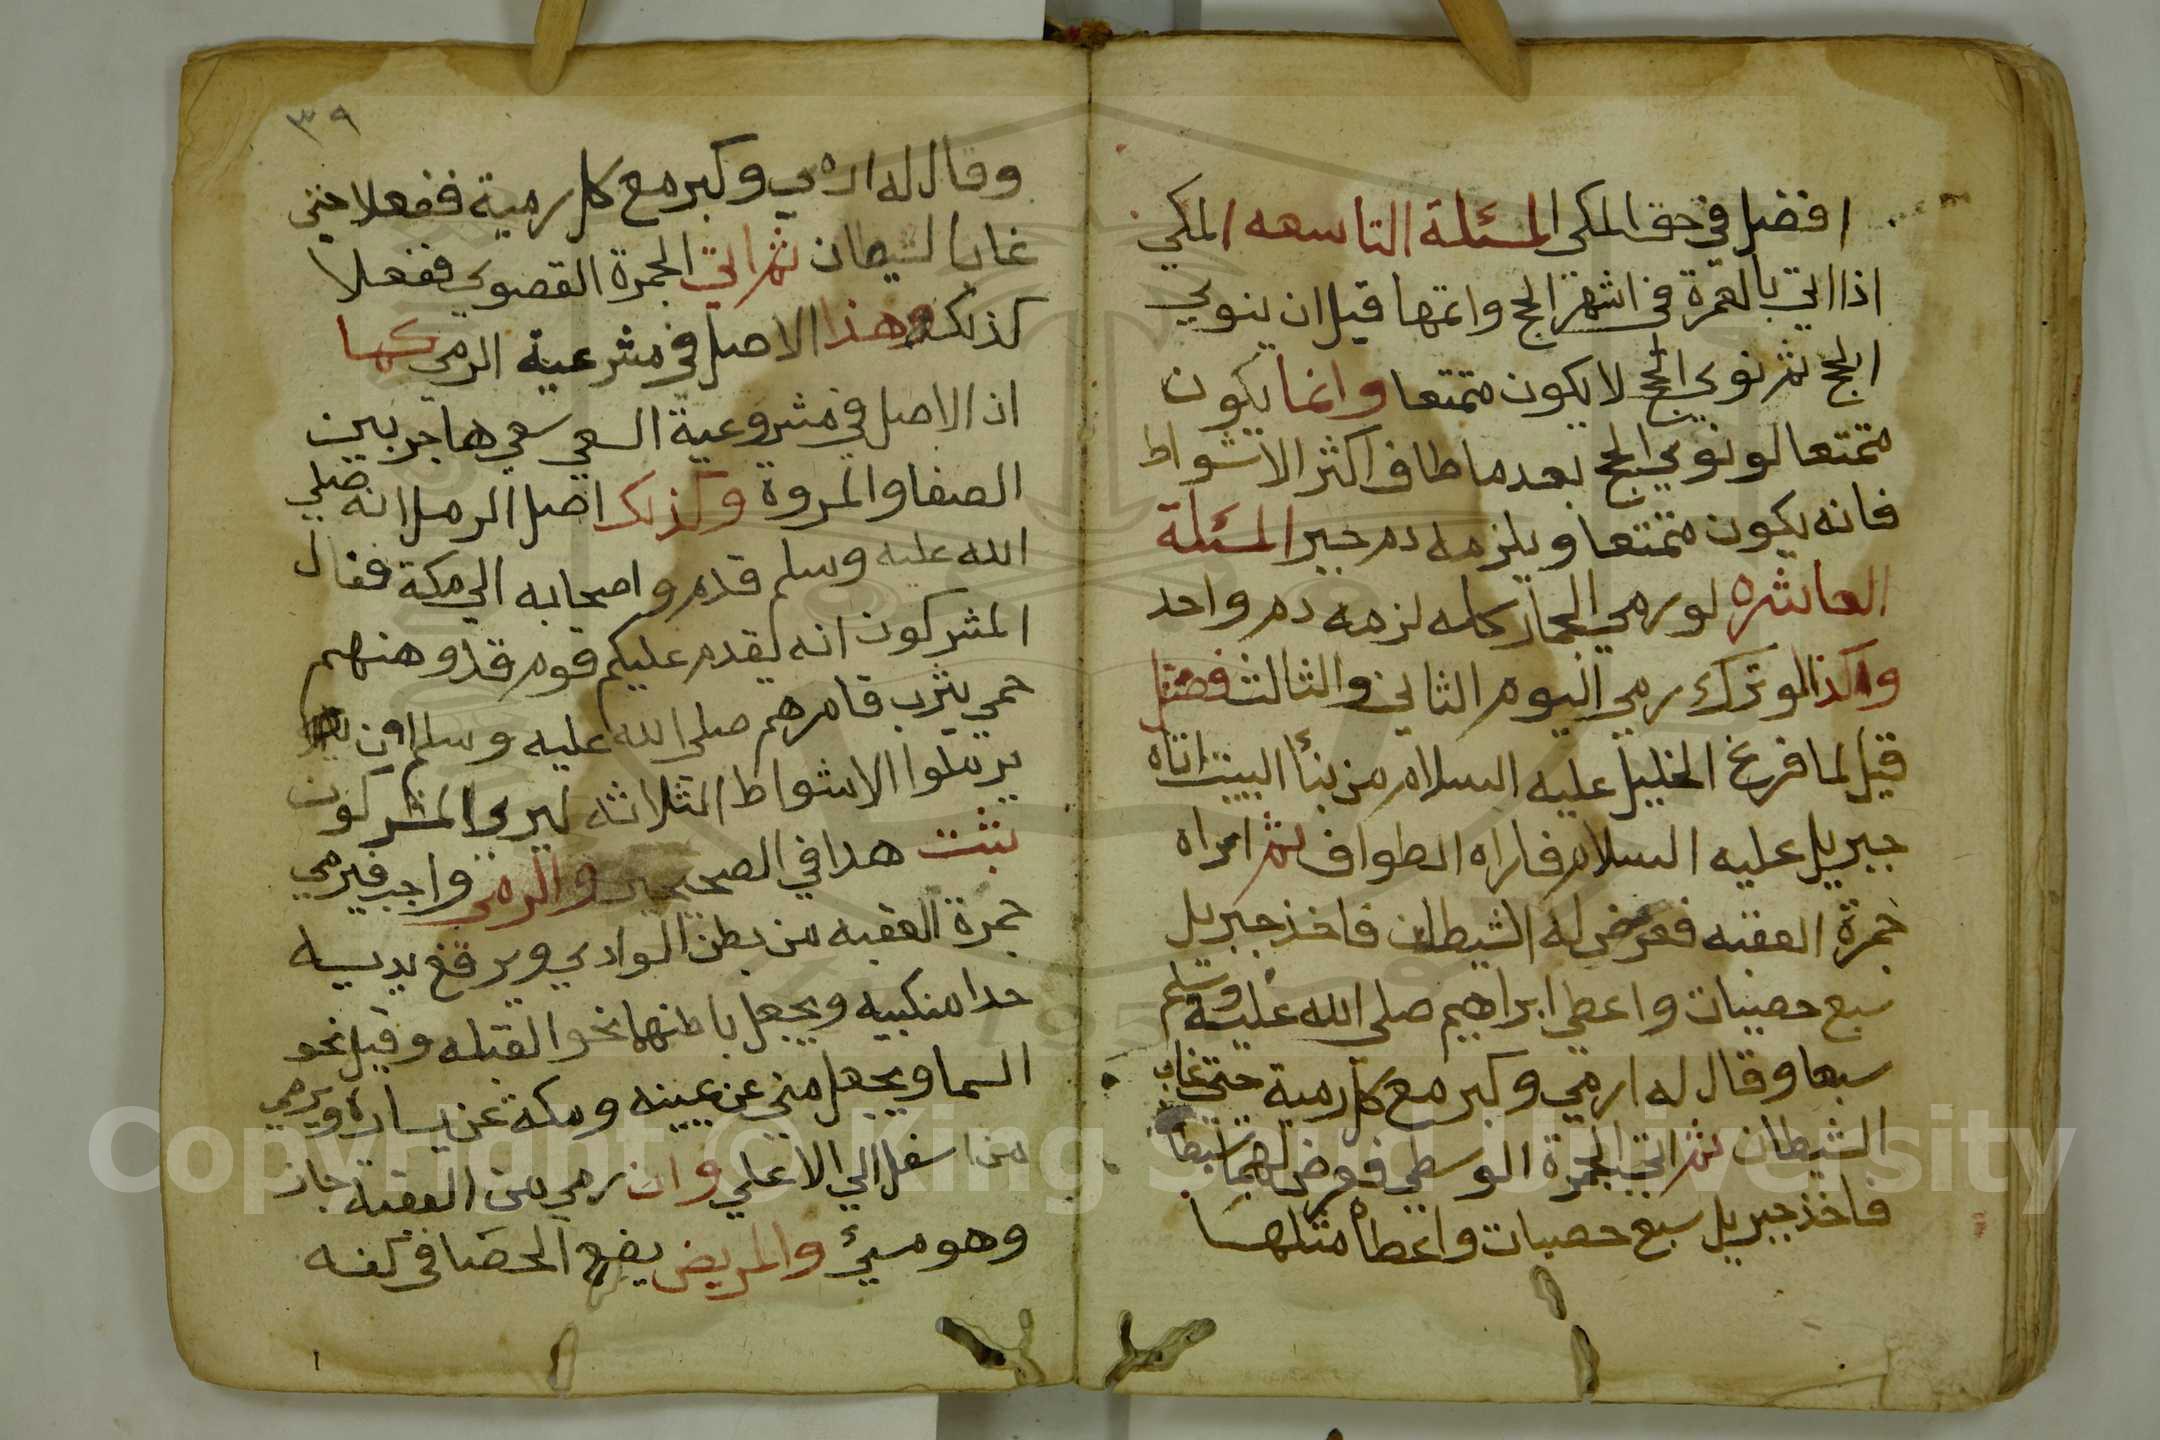 افضل في حق المكي المسئلة التاسعه المكي
اذا اتي بالعمرة في اشهر الحج واتمها قبل ان ينوي
الحج ثم نوي الحج لا يكون متمتعا وانما يكون
متمتعا لو نوي الحج بعد ما طاف اكثر الاشواط
فانه يكون متمتعا ويلزمه دم جبر المسئلة
العاشره لو رمي الجمار كله لزمه دم واحد
وكذا لو ترك رمي اليوم الثاني والثالث فصل
قيل لما فرغ الخليل عليه السلام من بنا البيت اتاه
جبريل عليه السلام فاراه الطواف ثم اراه
جمرة العقبه فعرض له الشيطان فاخذ جبريل
سبع حصيات واعطي ابراهيم صلي الله عليه وسلم
سبعا وقال له ارمي وكبر مع كل رمية حتي غاب
الشيطان ثم اتي الجمرة الوسطي فعرض لهما شيطان
فاخذ جبريل سبع حصيات واعطاه مثلها
٣٩
وقال له ارمي وكبر مع كل رمية ففعلا حتي
غاب الشيطان ثم اتي الجمرة القصوي ففعلا
كذلك وهذا الاصل في مشرعية الرمي كما
اذ الاصل في مشروعية السعي سعي هاجر بين
الصفا والمروة وكذلك اصل الرمل انه صلي
الله عليه وسلم قدم واصحابه الي مكة فقال
المشركون انه يقدم عليكم قوم قد وهنهم
حمي يثرب فامرهم صلي الله عليه وسلم ان
يرملوا الاشواط الثلاثه ليري المشركون
ثبت هدا في الصحيحين والرمي واجب فيرمي
جمرة العقبه من بطن الوادي ويرفع يديه
حدا منكبيه ويجعل باطنهما نحو القبله وقيل نحو
السما ويجعل مني عن يمينه ومكة عن يساره ويرمي
من اسفل الي الاعلي وان رمي من العقبة جاز
وهو مسيئ والمريض يضع الحصا في كفه
Copyright © King Saud University